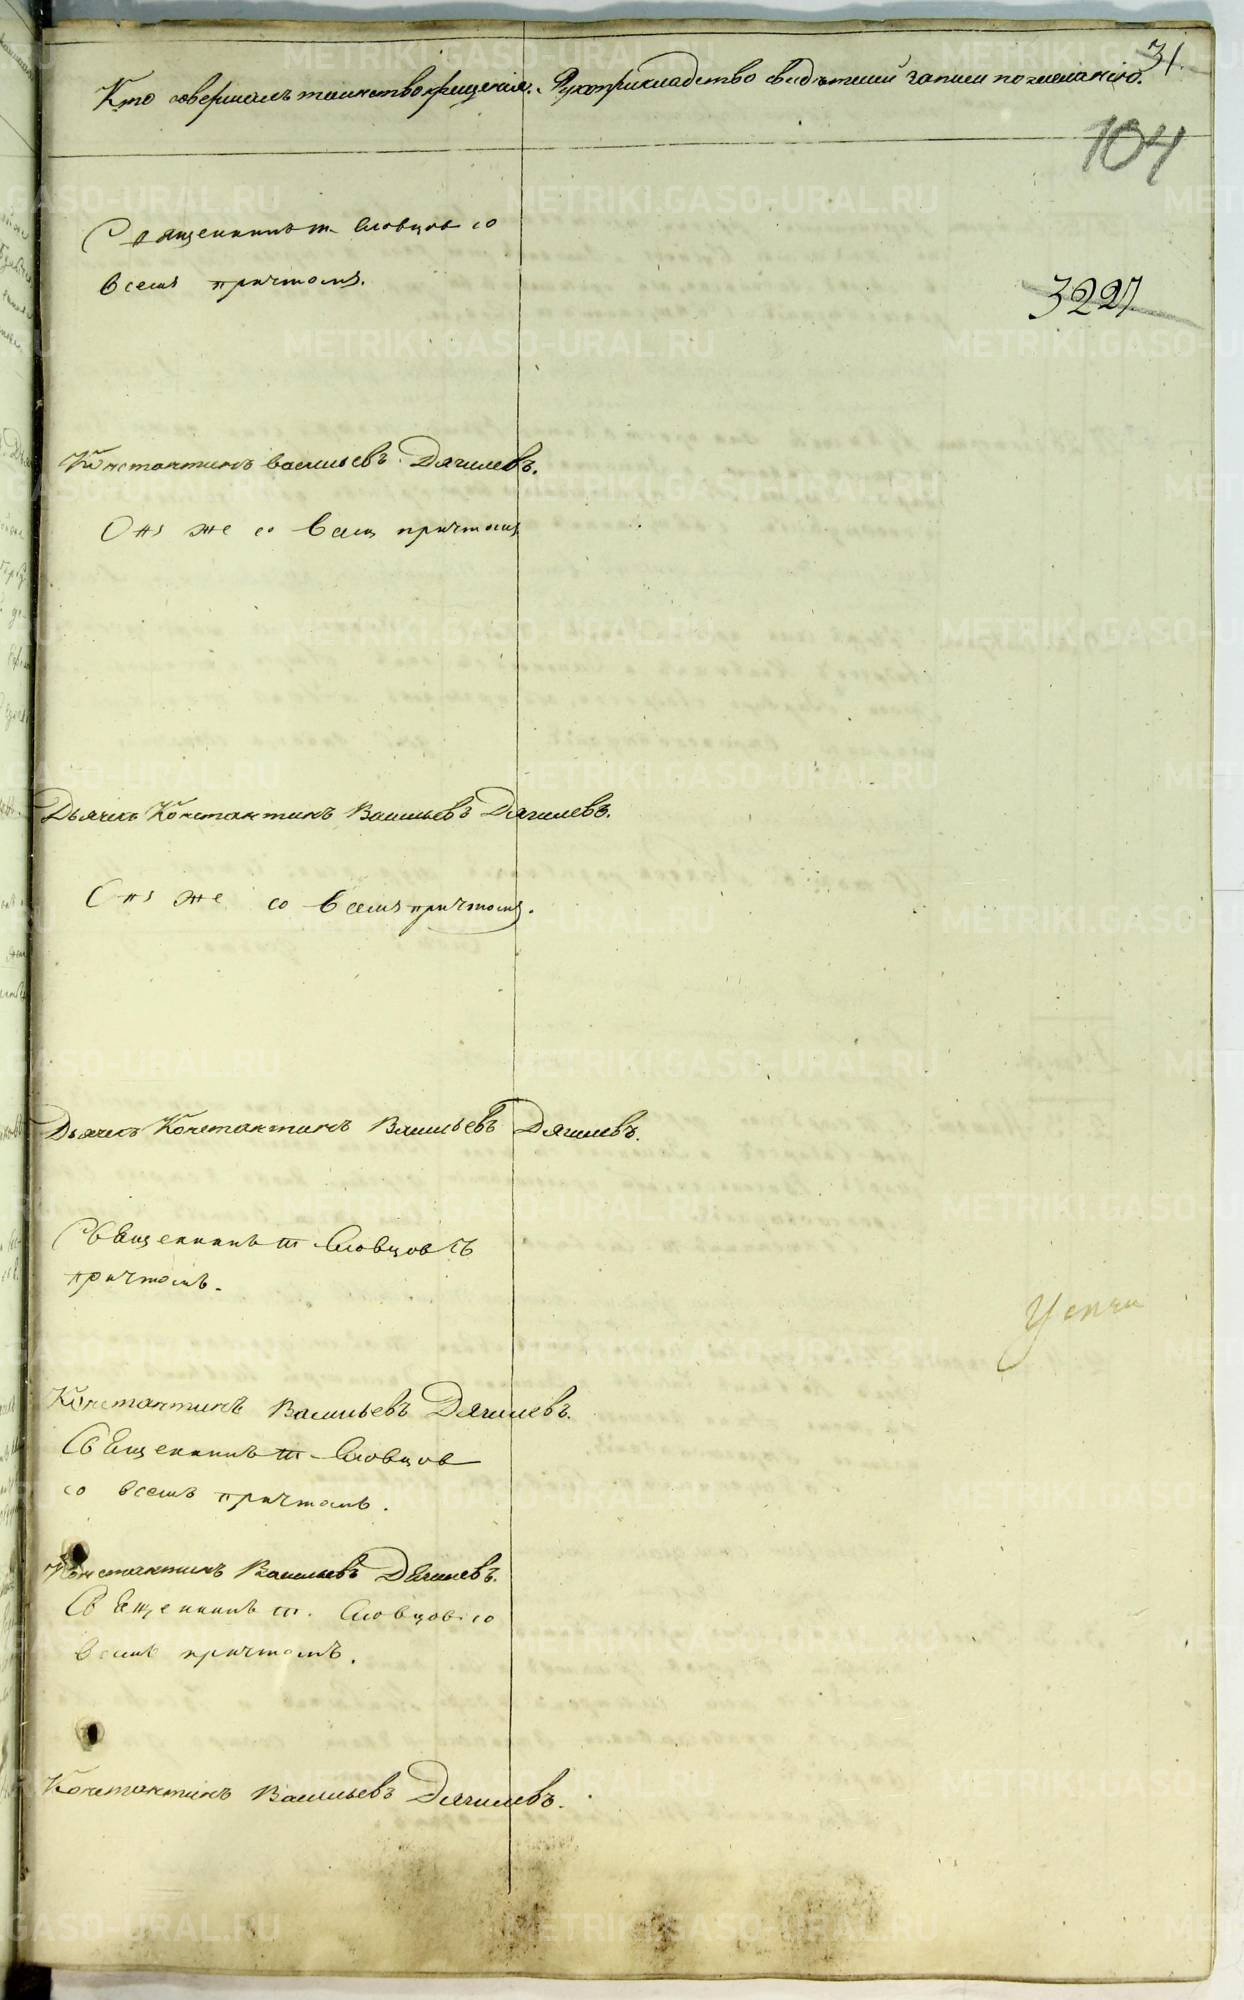 31.
Кто совершалъ таинство крещенія. Рукоприкладство свидѣтелей записи по желанію.
104
Священникъ Словцов со
всемъ причтомъ.
3227
Константинъ Васильевъ Дягилевъ.
Онъ же со всемъ причтомъ
Дьячекъ Константинъ Васильевъ Дягилевъ.
Онъ же со всемъ причтомъ.
Дьячекъ Константинъ Васильевъ Дягилевъ.
Священникъ Словцов съ
причтомъ.
Константинъ Васильевъ Дягилевъ.
Священникъ Словцов
со всемъ причтомъ.
Константинъ Васильевъ Дягилевъ.
Священникъ Словцов со
всемъ причтомъ.
Константинъ Васильевъ Дягилевъ.
METRIKI.GASO-URAL.RU